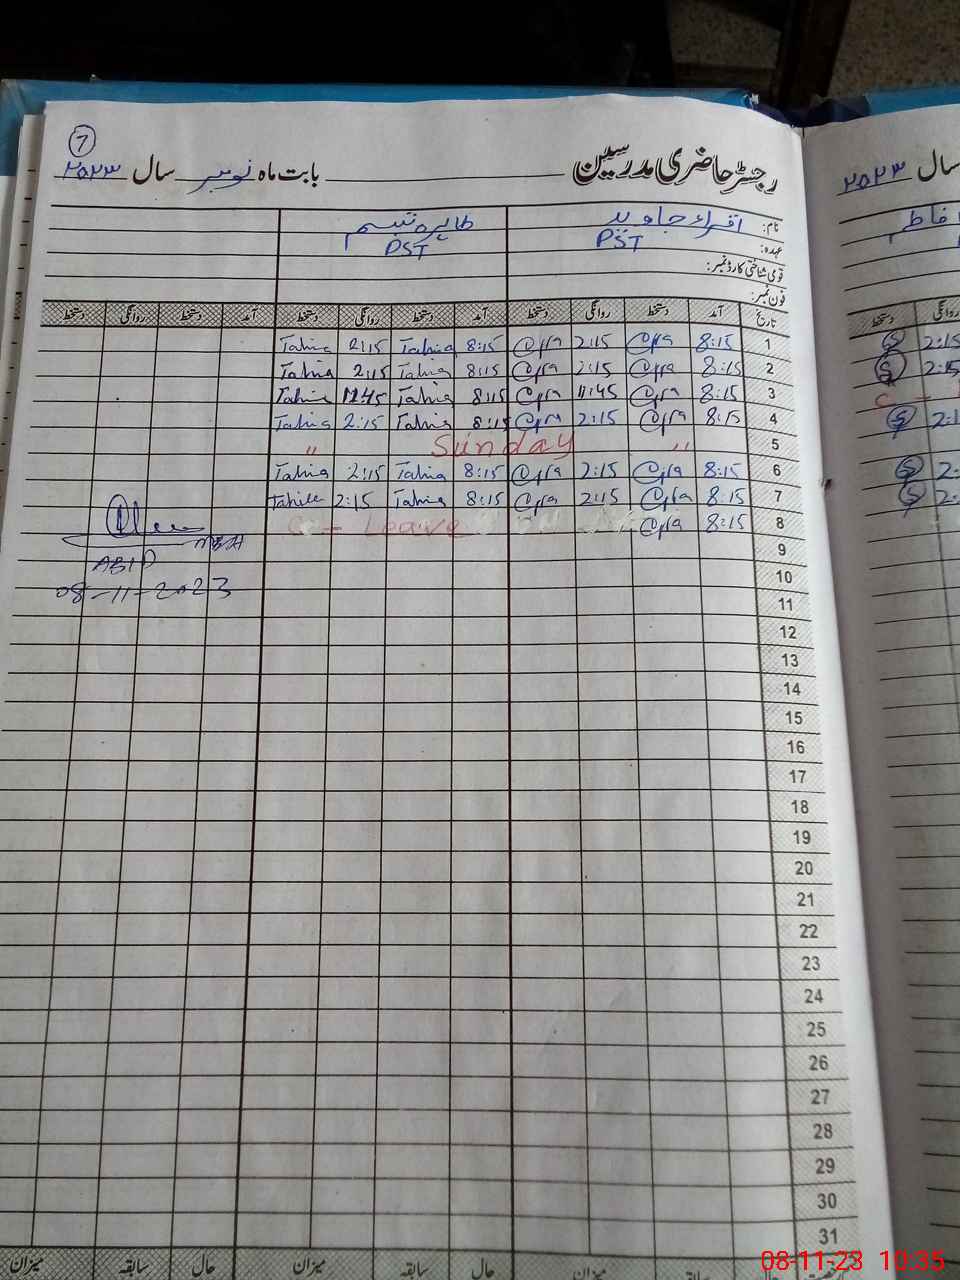 7
رجسٹر حاضری مدرسین بابت ماہ نومبر سال ۲۰۲۳
نام: اقراء جاوید طاہرہ تبسم
عہدہ: PST PST
قومی شناختی کارڈ نمبر:
فون نمبر:
تاریخ آمد دستخط روانگی دستخط آمد دستخط روانگی دستخط آمد دستخط روانگی دستخط
1 8:15 2:15 8:15 Tahira 2:15 Tahira
2 8:15 2:15 8:15 Tahira 2:15 Tahira
3 8:15 11:45 8:15 Tahira 11:45 Tahira
4 8:15 2:15 8:15 Tahira 2:15 Tahira
5 " Sunday "
6 8:15 2:15 8:15 Tahira 2:15 Tahira
7 8:15 2:15 8:15 Tahira 2:15 Tahira
8 8:15 C - Leave
9
10
11
12
13
14
15
16
17
18
19
20
21
22
23
24
25
26
27
28
29
30
31
08-11-2023
حال سابقہ میزان حال سابقہ میزان
سال ۲۰۲۳
روانگی دستخط
2:15
2:15
C -
08-11-23 10:35